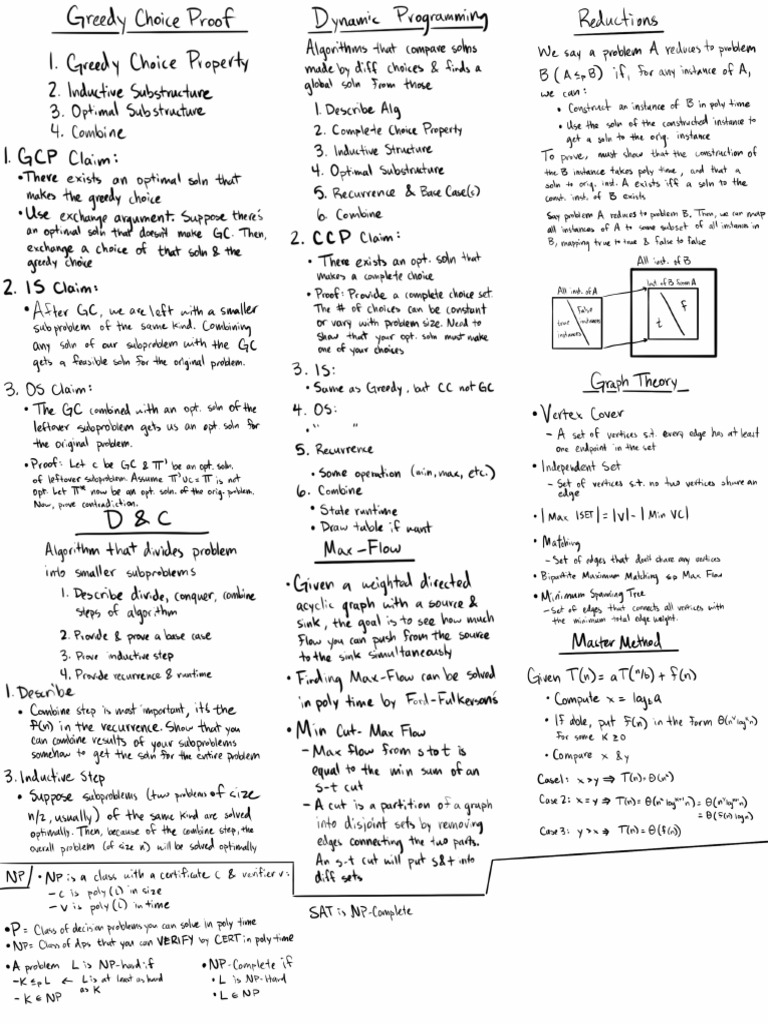 Greedy Choice Proof
1. Greedy Choice Property
2. Inductive Substructure
3. Optimal Substructure
4. Combine
1. GCP Claim:
• There exists an optimal soln that
makes the greedy choice
• Use exchange argument. Suppose there's
an optimal soln that doesn't make GC. Then,
exchange a choice of that soln & the
greedy choice
2. IS Claim:
• After GC, we are left with a smaller
subproblem of the same kind. Combining
any soln of our subproblem with the GC
gets a feasible soln for the original problem.
3. OS Claim:
• The GC combined with an opt. soln of the
leftover subproblem gets us an opt. soln for
the original problem.
• Proof: Let c be GC & Π' be an opt. soln.
of leftover subproblem. Assume Π'∪c = Π is not
opt. Let Π* now be an opt. soln of the orig. problem.
Now, prove contradiction.
D & C
Algorithm that divides problem
into smaller subproblems
1. Describe divide, conquer, combine
steps of algorithm
2. Provide & prove a base case
3. Prove inductive step
4. Provide recurrence & runtime
1. Describe
• Combine step is most important, it's the
f(n) in the recurrence. Show that you
can combine results of your subproblems
somehow to get the soln for the entire problem
3. Inductive Step
• Suppose subproblems (two problems of size
n/2, usually) of the same kind are solved
optimally. Then, because of the combine step, the
overall problem (of size n) will be solved optimally
Dynamic Programming
Algorithms that compare solns
made by diff choices & finds a
global soln from those
1. Describe Alg
2. Complete Choice Property
3. Inductive Structure
4. Optimal Substructure
5. Recurrence & Base Case(s)
6. Combine
2. CCP Claim:
• There exists an opt. soln that
makes a complete choice
• Proof: Provide a complete choice set.
The # of choices can be constant
or vary with problem size. Need to
show that your opt. soln must make
one of your choices
3. IS:
• Same as Greedy, but CC not GC
4. OS:
• " "
5. Recurrence
• Some operation (min, max, etc.)
6. Combine
• State runtime
• Draw table if want
Max-Flow
• Given a weighted directed
acyclic graph with a source &
sink, the goal is to see how much
flow you can push from the source
to the sink simultaneously
• Finding Max-Flow can be solved
in poly time by Ford-Fulkerson's
• Min Cut- Max Flow
– Max flow from s to t is
equal to the min sum of an
s-t cut
– A cut is a partition of a graph
into disjoint sets by removing
edges connecting the two parts.
An s-t cut will put s & t into
diff sets
Reductions
We say a problem A reduces to problem
B (A ≤p B) if, for any instance of A,
we can:
• Construct an instance of B in poly time
• Use the soln of the constructed instance to
get a soln to the orig. instance
To prove, must show that the construction of
the B instance takes poly time, and that a
soln to orig. inst. A exists iff a soln to the
const. inst. of B exists
Say problem A reduces to problem B. Then, we can map
all instances of A to some subset of all instances in
B, mapping true to true & false to false
All inst. of B
All inst. of A
Inst. of B from A
true instances
False instances
t
f
Graph Theory
• Vertex Cover
– A set of vertices s.t. every edge has at least
one endpoint in the set
• Independent Set
– Set of vertices s.t. no two vertices share an
edge
• |Max ISET| = |V| - |Min VC|
• Matching
– Set of edges that don't share any vertices
• Bipartite Maximum Matching ≤p Max Flow
• Minimum Spanning Tree
– Set of edges that connects all vertices with
the minimum total edge weight.
Master Method
Given T(n) = aT(n/b) + f(n)
• Compute x = log_b a
• If doable, put f(n) in the form Θ(n^y log^k n)
for some K ≥ 0
• Compare x & y
Case 1: x > y ⇒ T(n) = Θ(n^x)
Case 2: x = y ⇒ T(n) = Θ(n^x log^{k+1} n) = Θ(n^y log^{k+1} n)
= Θ(f(n) log n)
Case 3: y > x ⇒ T(n) = Θ(f(n))
NP
• NP is a class with a certificate c & verifier v:
– c is poly(L) in size
– v is poly(L) in time
• P = Class of decision problems you can solve in poly time
• NP = Class of dps that you can VERIFY by CERT in poly time
• A problem L is NP-hard if
– K ≤p L ← L is at least as hard
as K
– K ∈ NP
• NP-Complete if
• L is NP-Hard
• L ∈ NP
SAT is NP-Complete